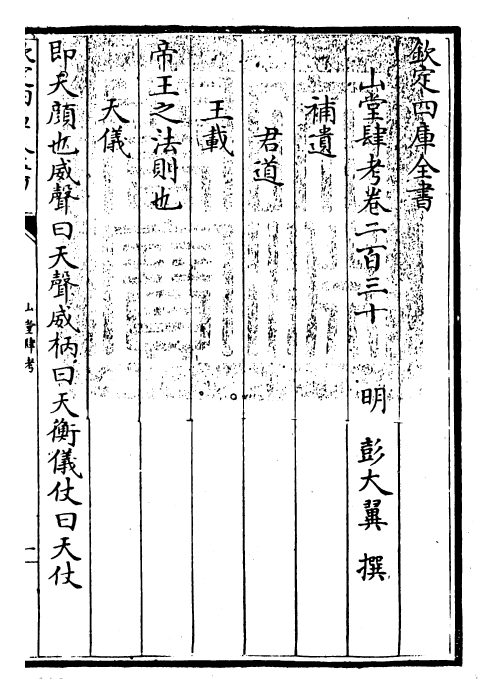 欽定四庫全書
山堂肆考卷二百三十
明 彭大翼 撰
補遺
君道
王載
帝王之法則也
天儀
即天顔也威聲曰天聲威柄曰天衡儀仗曰天仗
山堂肆考
一